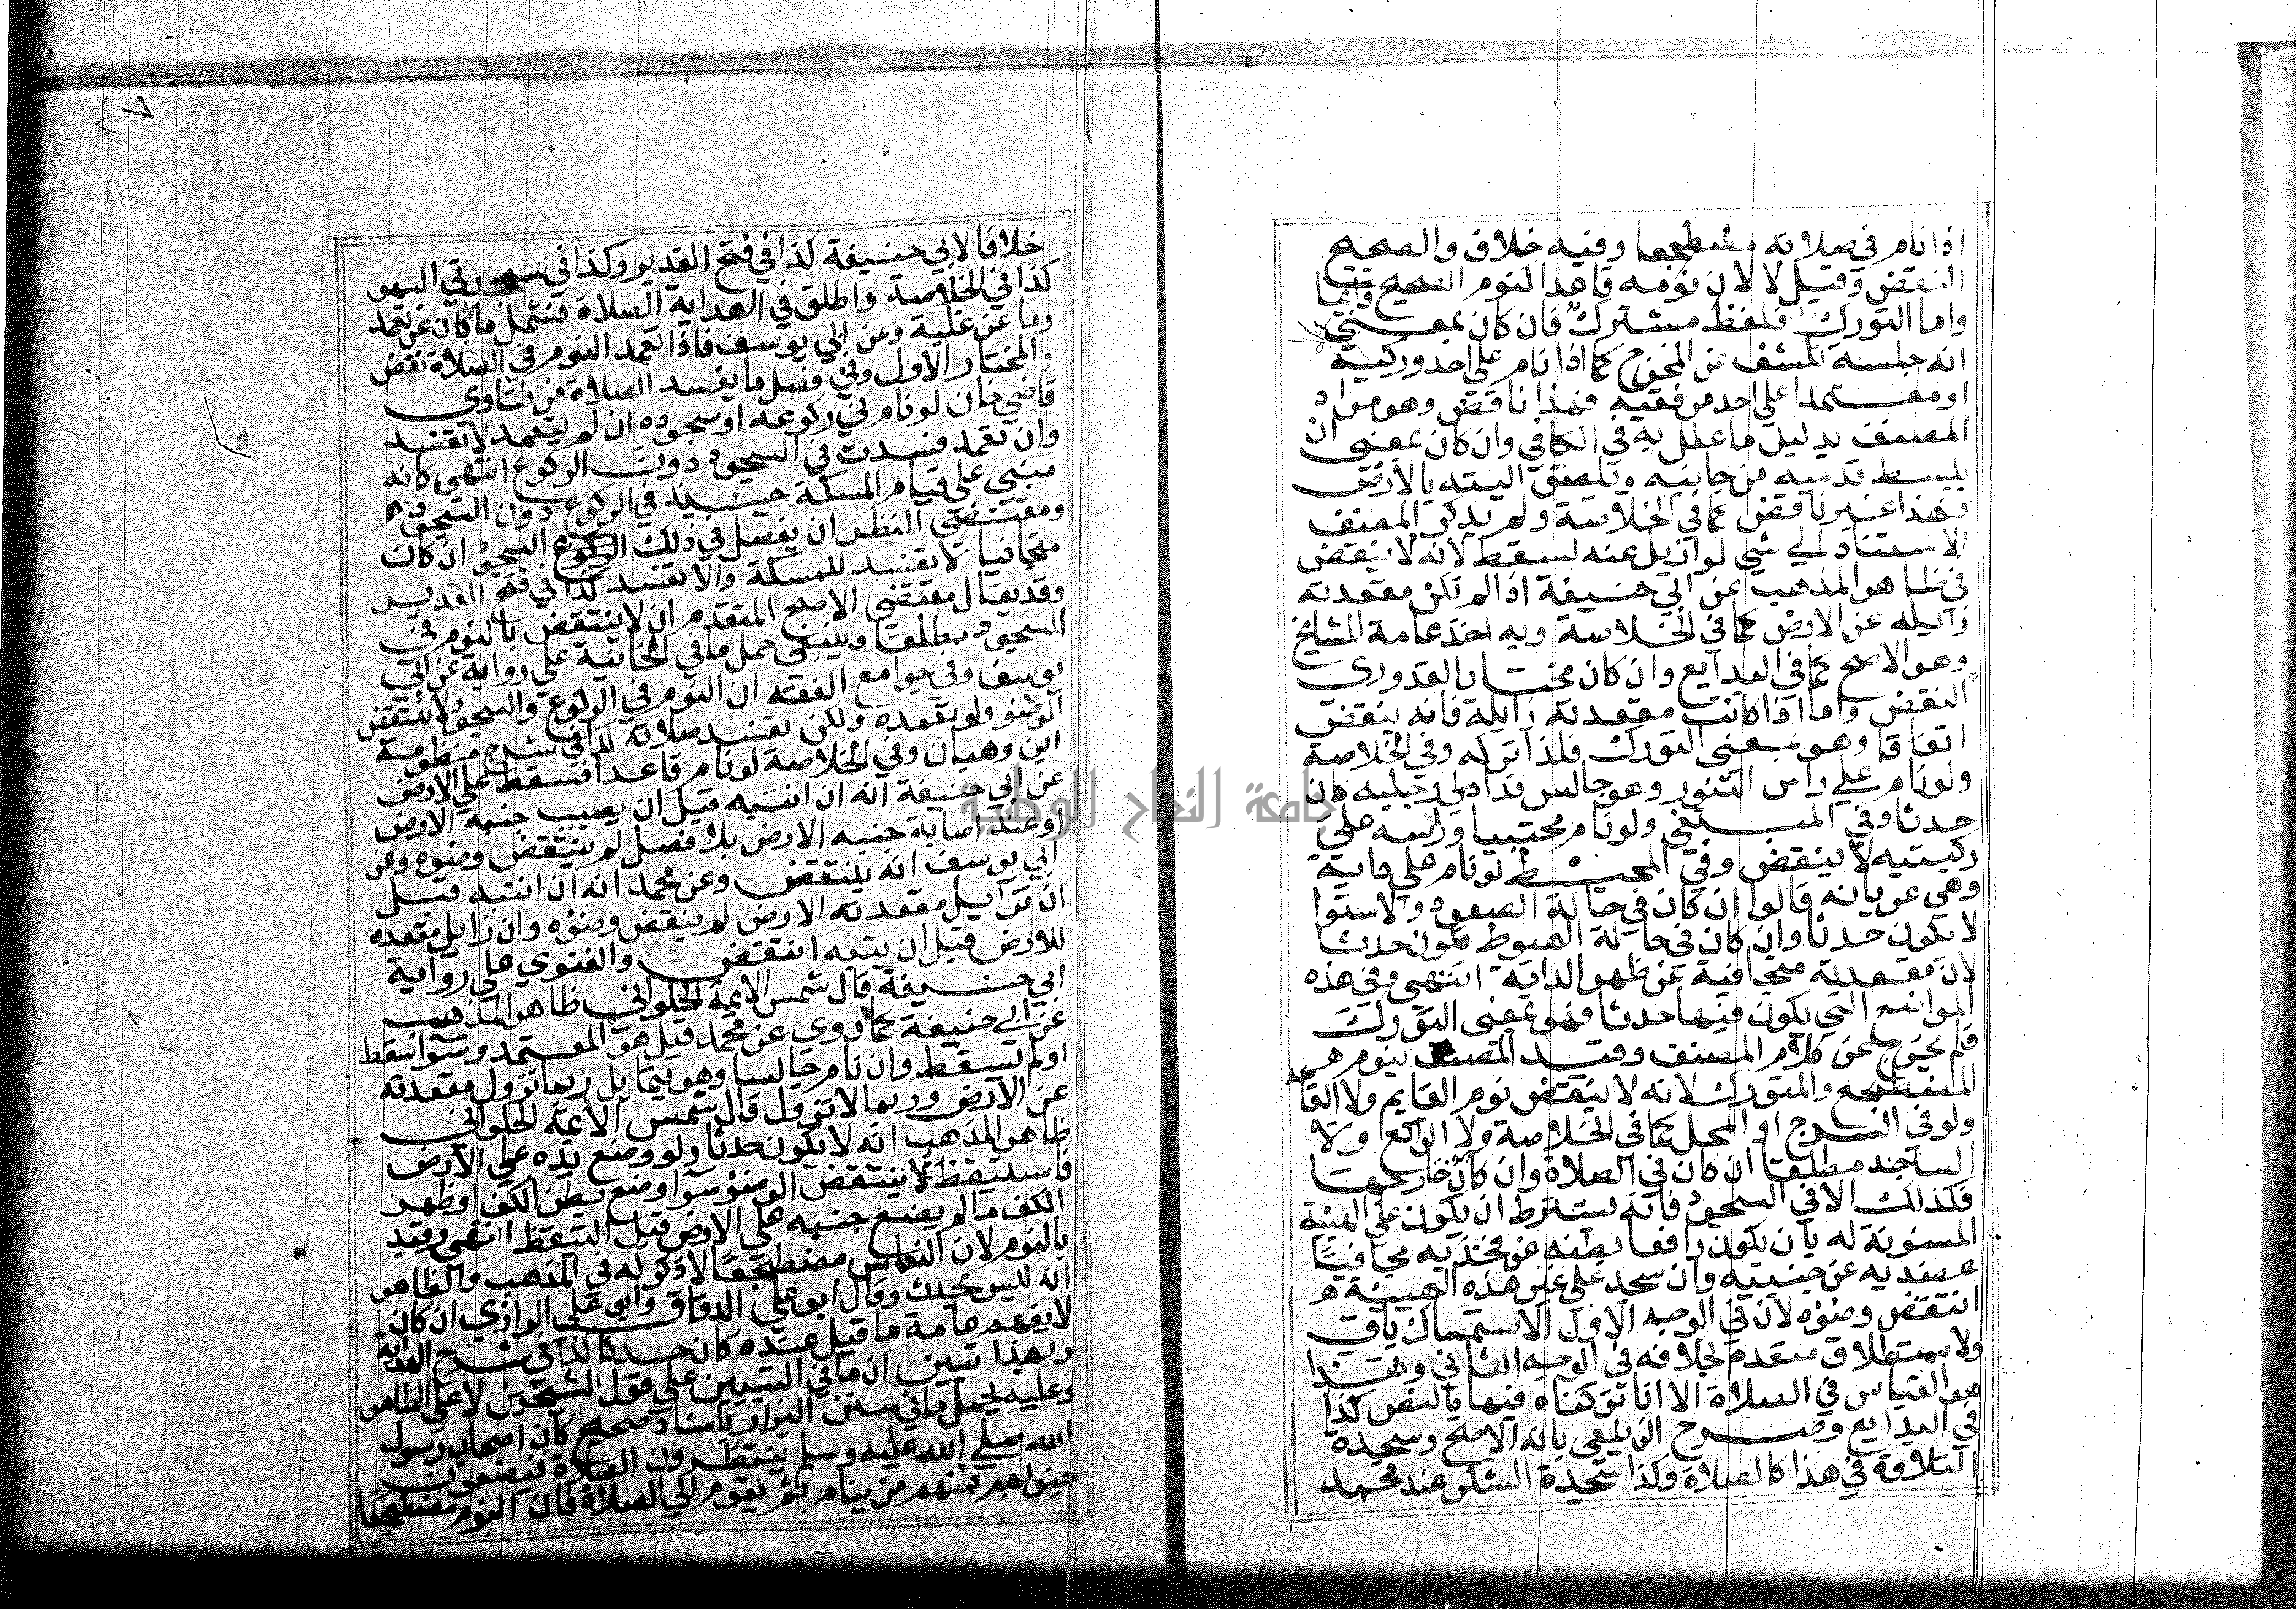 اذا نام في صلاته مضطجعا وفيه خلاف والصحيح
النقض وقيل لا لان نومه قاعدا النوم الصحيح
واما التورك فلفظ مشترك فان كان بمعنى
انه جلسة تكشف عن المخرج كما اذا نام على احد وركيه
او معتمدا على احد مرفقيه فهذا ناقض وهو مراد
المصنف بدليل ما علل به في الكافي وان كان بمعنى ان
يبسط قدميه من جانبه ويلصق اليته بالارض
فهذا غير ناقض كما في الخلاصة ولم يذكر المصنف
الاستناد الي شي لو ازيل عنه لسقط لانه لا ينقض
في ظاهر المذهب عن ابي حنيفة اذا لم تكن مقعدته
زايله عن الارض كما في الخلاصة وبه اخذ عامة المشايخ
وهو الاصح كما في البدايع وان كان مختار القدوري
النقض واما اذا كانت مقعدته زايلة فانه ينقض
اتفاقا وهو بمعنى التورك فلذا تركه وفي الخلاصة
ولو نام على راس التنور وهو جالس قد ادلى رجليه كان
حدثا وفي المبتغى ولو نام محتبيا وراسه على
ركبتيه لا ينقض وفي المحيط لو نام على دابة
وهي عريانه قالوا ان كان في حالة الصعود والاستوا
لا يكون حدثا وان كان في حالة الهبوط يكون حدثا
لان مقعدته متجافية عن ظهر الدابة انتهى وفي هذه
المواضع التي يكون فيها حدثا فهو بمعنى التورك
فلم يخرج عن كلام المصنف وقيد المصنف بنوم
المضطجع والمتورك لانه لا ينقض نوم القايم ولا القاعد
ولو في السرج او المحمل كما في الخلاصة ولا الراكع ولا
الساجد مطلقا ان كان في الصلاة وان كان خارجها
فكذلك الا في السجود فانه يشترط ان يكون على الهيئة
المسنونة له بان يكون رافعا بطنه عن فخذيه مجافيا
عضديه عن جنبيه وان سجد على غير هذه الهيئة
انتقض وضوءه لان في الوجه الاول الاستمساك باق
والاستطلاق منعدم بخلافه في الوجه الثاني وهذا
هو القياس في الصلاة الا انا تركناه فيها بالنص كذا
في البدايع وصرح الزيلعي بانه الاصح وسجدة
التلاوة في هذا كالصلاة وكذا سجدة الشكر عند محمد
خلافا لابي حنيفة كذا في فتح القدير وكذا في سجدتي السهو
كذا في الخلاصة واطلق في الهداية الصلاة فشمل ما كان عن تعمد
وما عن غلبة وعن ابي يوسف فاذا تعمد النوم في الصلاة نقض
والمختار الاول وفي فصل ما يفسد الصلاة من فتاوى
قاضي خان لو نام في ركوعه او سجوده ان لم يتعمد لا تفسد
وان تعمد فسدت في السجود دون الركوع انتهى كانه
مبني على قيام المسكة حينئذ في الركوع دون السجود
ومقتضى النظر ان يفصل في ذلك السجود ان كان
متجافيا لا تفسد للمسكة والا تفسد كذا في فتح القدير
وقد يقال مقتضى الاصح المتقدم ان لا ينتقض بالنوم في
السجود مطلقا وينبغي حمل ما في الخانية على رواية عن ابي
يوسف وفي جوامع الفقه ان النوم في الركوع والسجود لا ينقض
الوضو ولو تعمده ولكن تفسد صلاته كذا في شرح منظومة
ابن وهبان وفي الخلاصة لو نام قاعدا فسقط على الارض
عن ابي حنيفة انه ان انتبه قبل ان يصيب جنبه الارض
او عند اصابة جنبه الارض بلا فصل لم ينتقض وضوه وعن
ابي يوسف انه ينتقض وعن محمد انه ان انتبه قبل
ان تزايل مقعدته الارض لم ينقض وضؤه وان زايل مقعده
للارض قبل ان ينتبه انتقض والفتوي على رواية
ابي حنيفة قال شمس الايمة الحلواني ظاهر المذهب
عن ابي حنيفة كما روي عن محمد قيل هو المعتمد وسوا سقط
او لم يسقط وان نام جالسا وهو يتمايل ربما تزول مقعدته
عن الارض وربما لا تزول قال شمس الايمة الحلواني
ظاهر المذهب انه لا يكون حدثا ولو وضع يده على الارض
فاستيقظ لا ينتقض الوضوء سوا وضع بطن الكف او ظهر
الكف ما لم يضع جنبه على الارض قبل التيقظ انتهى وقيد
بالنوم لان النعاس مضطجعا لا ذكر له في المذهب والظاهر
انه ليس بحدث وقال ابو علي الدقاق وابو علي الرازي ان كان
لا يفهم عامة ما قيل عنده كان حدثا كذا في شرح الهداية
وبهذا تبين ان ما في التبيين على قول الشيخين لا على الظاهر
وعليه يحمل ما في سنن البزار باسناد صحيح كان اصحاب رسول
الله صلى الله عليه وسلم ينتظرون الصلاة فيضعون
جنوبهم فمنهم من ينام ثم يقوم الي الصلاة فان النوم مضطجعا
جامعة النجاح الوطنية